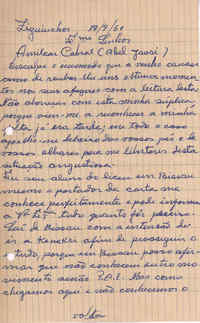 Ziguinchor 19/9/61
Ex.mos Senhores
Amílcar Cabral (Abel Djassi)
Desculpe o incomodo que a venho causar
como de roubar-lhe uns ultimos momen-
tos nos seus afazeres com a leitura desta.
Não aborreça com esta minha suplica,
porque vem-me a reconhecer a minha
falta já era tarde; em todo o caso
ajoelho-me debaixo dos vossos pés e de
vossos olhares para me libertarem desta
situação angustiosa.
Eu sou aluno do liceu em Bissau
mesmo o portador da carta me
conhece perfeitamente e pode informar
a V.as Ex.as tudo quanto fôr preciso.
Saí de Bissau com a intenção de
ir a Konakri afim de prosseguir o
estudo, porque em Bissau posso afir-
mar que não conheciam outro mo-
vimento senão P.A.I. Mas como
chegamos aqui e não conhecemos o
volta